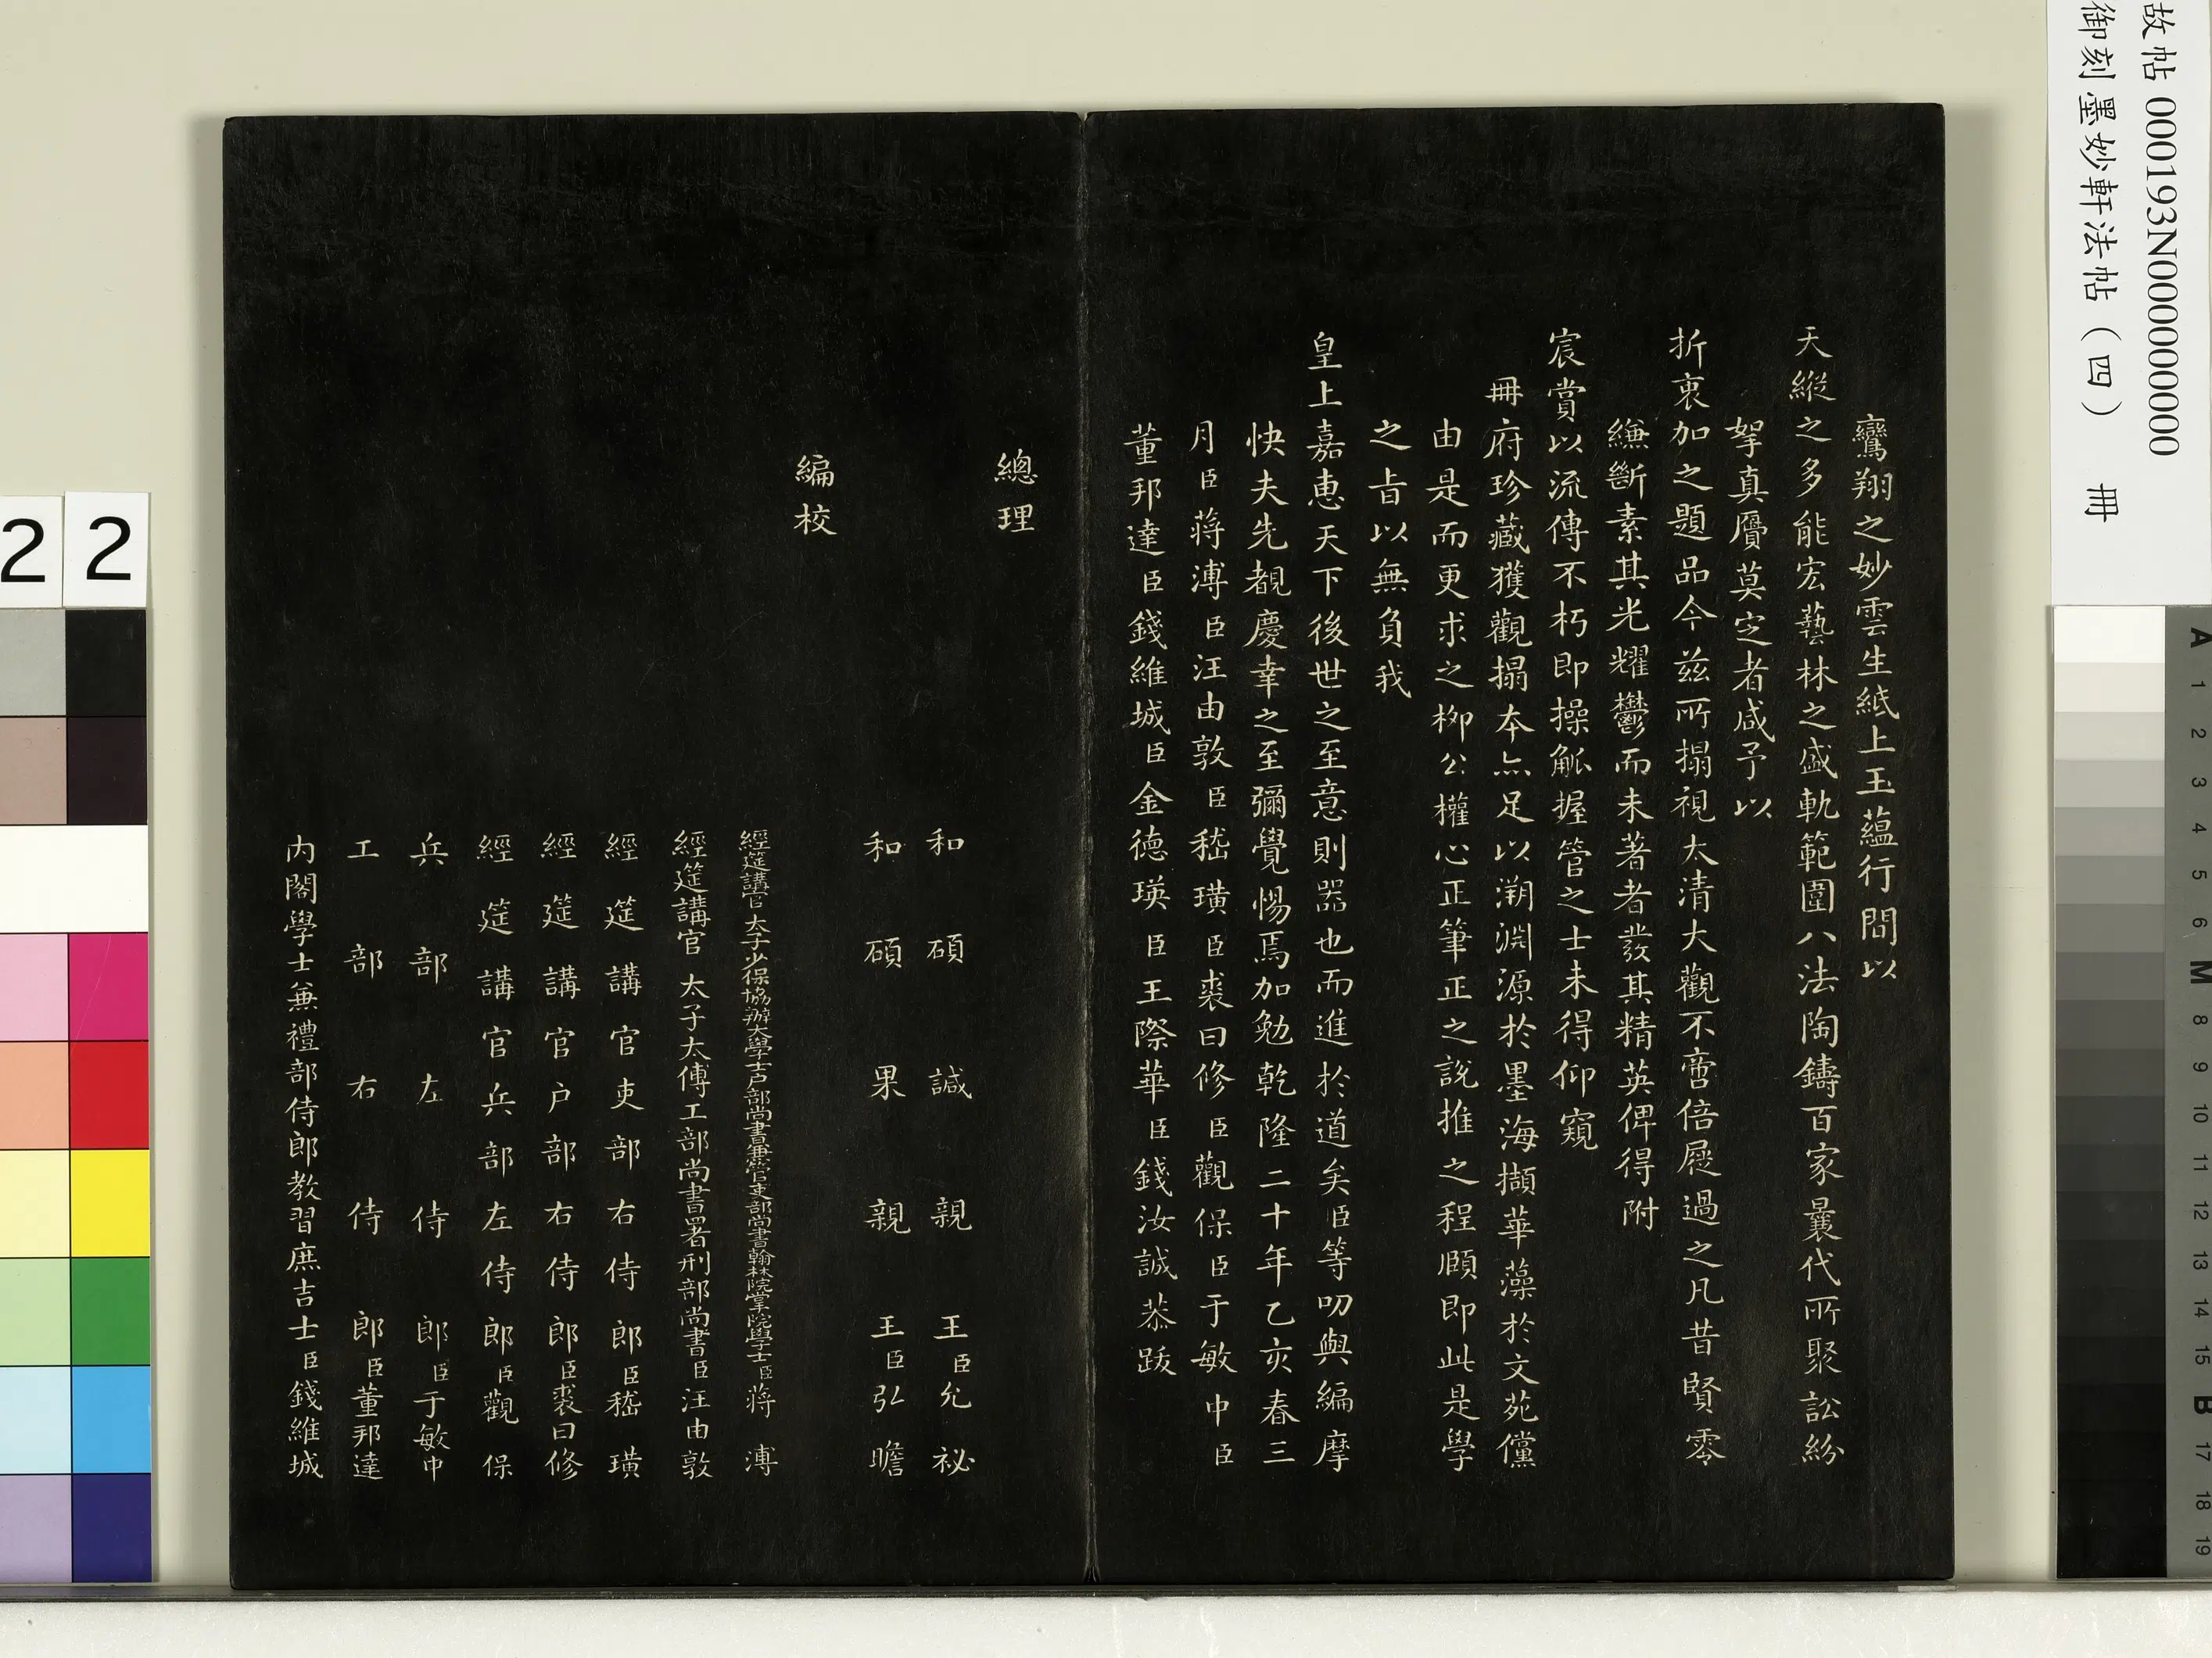 故帖 000193N000000000
御刻墨妙軒法帖（四） 冊
鸞翔之妙雲生紙上玉蘊行間以
天縱之多能宏藝林之盛軌範圍八法陶鑄百家曩代所聚訟紛
挐真贗莫定者咸予以
折衷加之題品今茲所搨視太清大觀不啻倍屣過之凡昔賢零
縑斷素其光耀鬱而未著者發其精英俾得附
宸賞以流傳不朽即操觚握管之士未得仰窺
冊府珍藏獲觀搨本亦足以溯淵源於墨海擷華藻於文苑儻
由是而更求之柳公權心正筆正之說推之程頤即此是學
之旨以無負我
皇上嘉惠天下後世之至意則器也而進於道矣臣等叨與編摩
快夫先覩慶幸之至彌覺惕焉加勉乾隆二十年乙亥春三
月臣蔣溥臣汪由敦臣嵇璜臣裘曰修臣觀保臣于敏中臣
董邦達臣錢維城臣金德瑛臣王際華臣錢汝誠恭跋
總理
和碩諴親王臣允祕
和碩果親王臣弘瞻
編校
經筵講官太子少保協辦大學士戶部尚書兼管吏部尚書翰林院掌院學士臣蔣溥
經筵講官太子太傅工部尚書署刑部尚書臣汪由敦
經筵講官吏部右侍郎臣嵇璜
經筵講官戶部右侍郎臣裘曰修
經筵講官兵部左侍郎臣觀保
兵部左侍郎臣于敏中
工部右侍郎臣董邦達
內閣學士兼禮部侍郎教習庶吉士臣錢維城
2 2
A 1 2 3 4 5 6 M 8 9 10 11 12 13 14 15 B 17 18 19